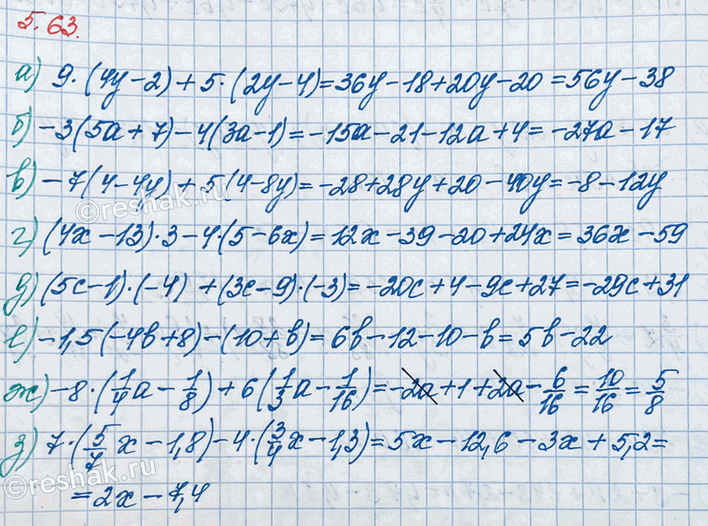 5.63.
а) 9·(4y-2)+5·(2y-4)=36y-18+20y-20=56y-38
б) -3(5a+7)-4(3a-1)=-15a-21-12a+4=-27a-17
в) -7(4-4y)+5(4-8y)=-28+28y+20-40y=-8-12y
г) (4x-13)·3-4·(5-6x)=12x-39-20+24x=36x-59
д) (5c-1)·(-4)+(3c-9)·(-3)=-20c+4-9c+27=-29c+31
е) -1,5(-4b+8)-(10+b)=6b-12-10-b=5b-22
ж) -8·(1/4a-1/8)+6(1/3a-1/16)=-2a+1+2a-6/16=10/16=5/8
з) 7·(5/7x-1,8)-4·(3/4x-1,3)=5x-12,6-3x+5,2=
=2x-7,4
©reshak.ru
©reshak.ru